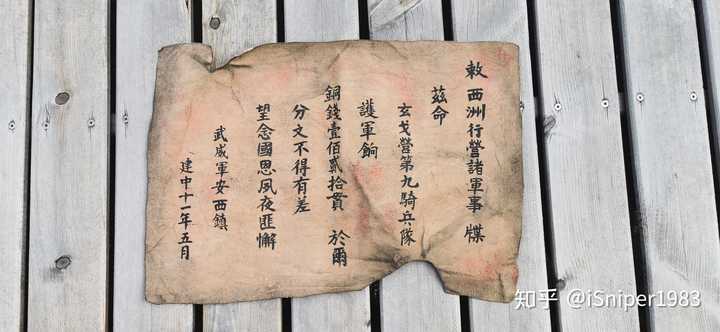 敕 西洲行營諸軍事 牒
茲命
玄戈營第九騎兵隊
護軍餉
銅錢壹佰貳拾貫 於爾
分文不得有差
望念國恩夙夜匪懈
武威軍安西鎮
建中十一年五月
知乎 @iSniper1983